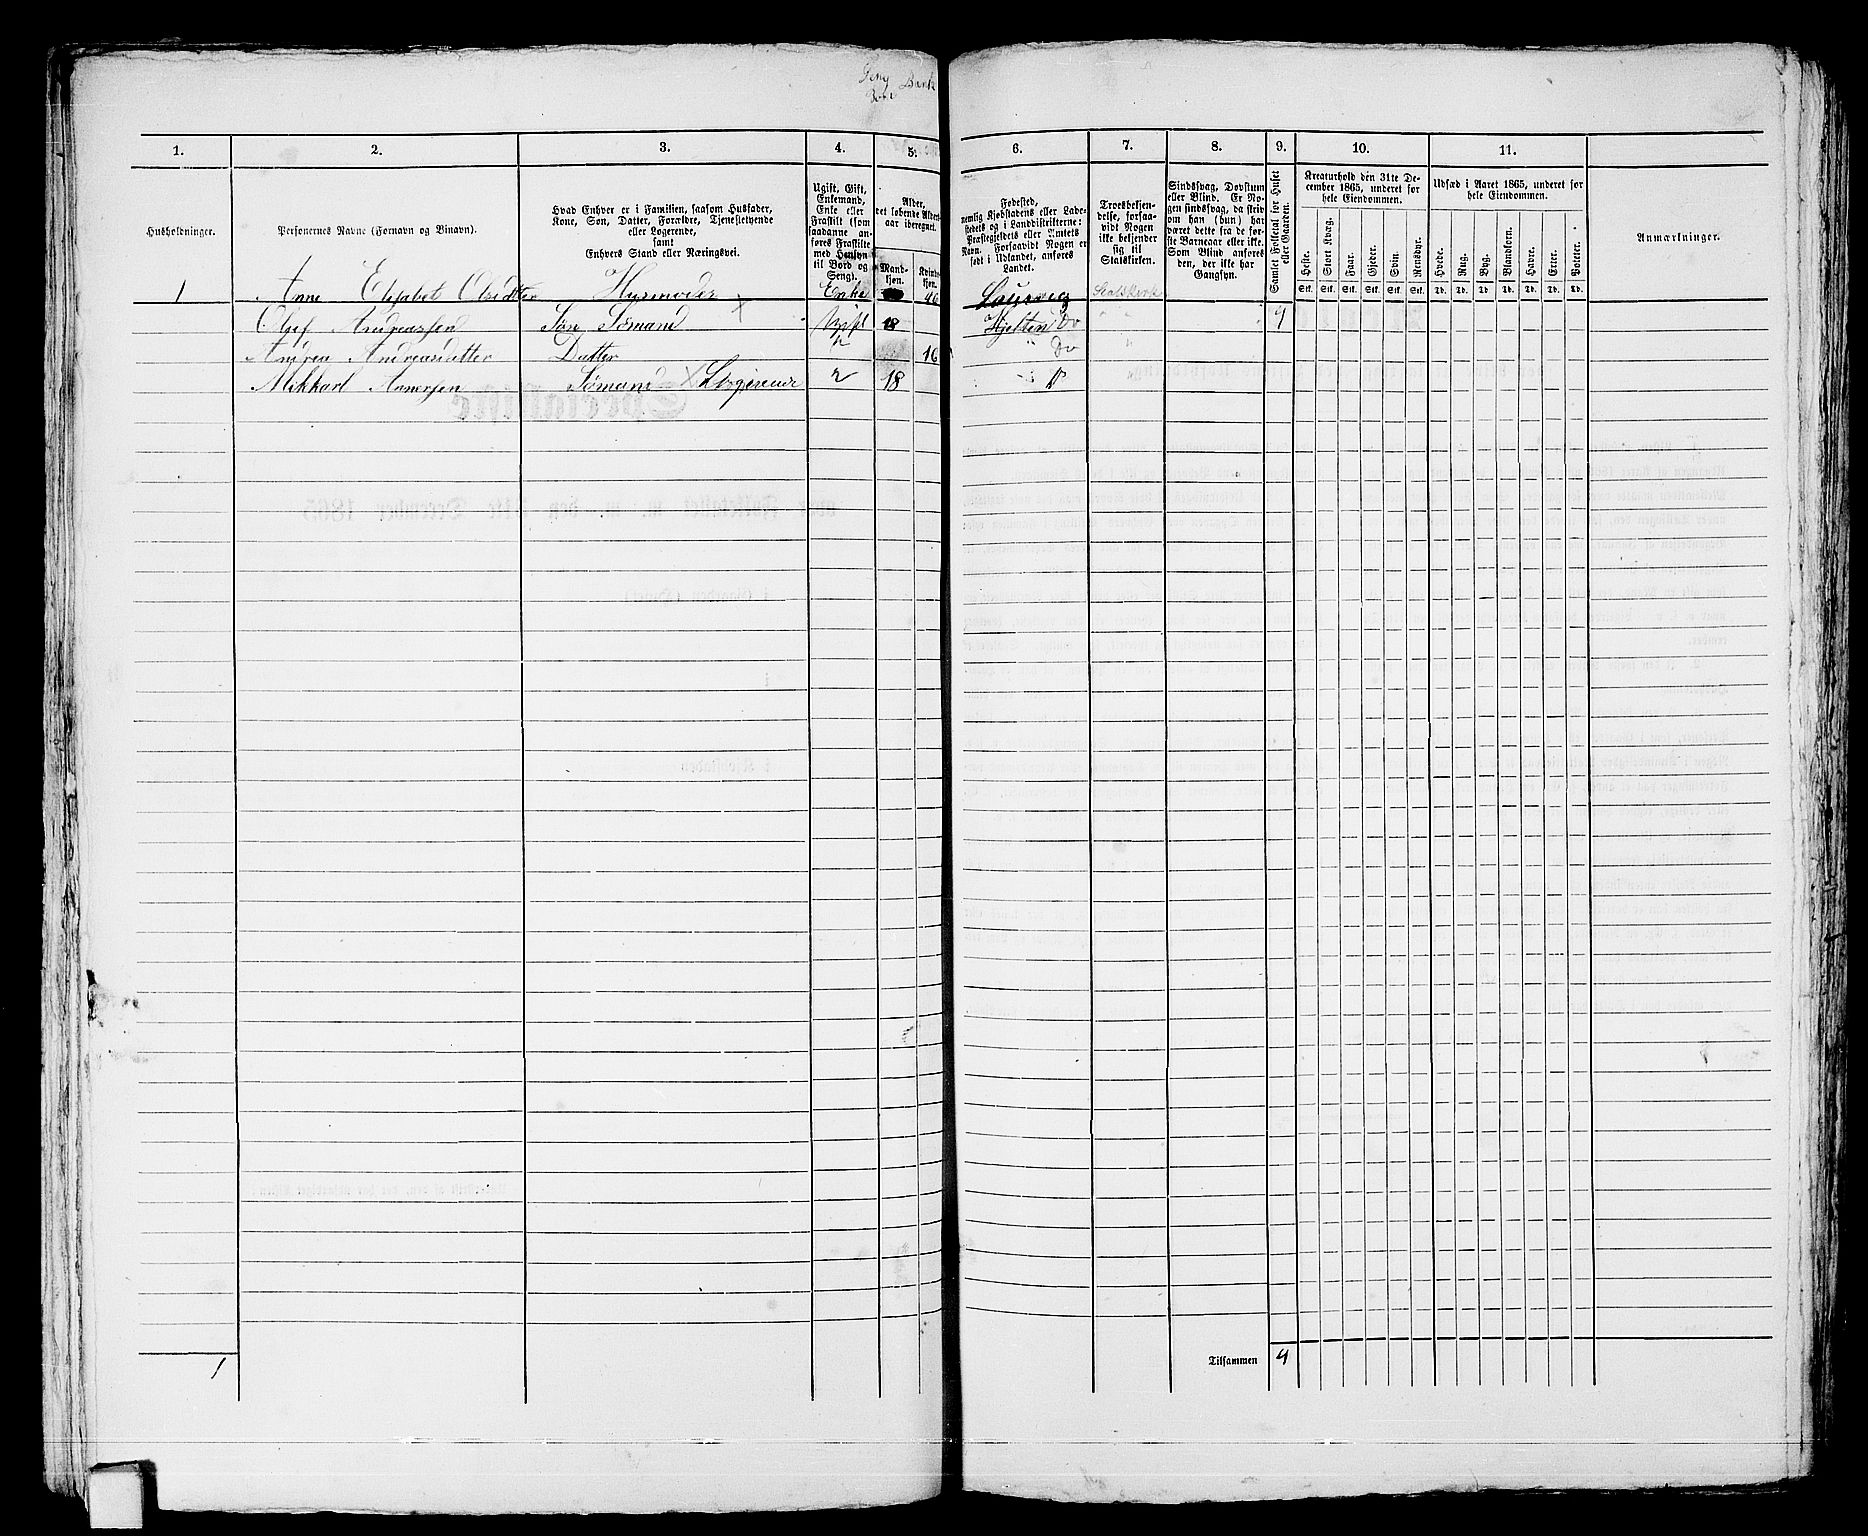 1. 2. 3. 4. 5. 6. 7. 8. 9. 10. 11.
Husholdninger.
Personernes Navne (Fornavn og Binavn).
Hvad Enhver er i Familien, saasom Husfader,
Kone, Søn, Datter, Forældre, Tjenestetyende
eller Logerende,
samt
Enhvers Stand eller Næringsvei.
Ugift, Gift,
Enkemand,
Enke eller
Fraskilt (som
saadanne an-
føres Fraskilte
med Hensyn
til Bord og
Seng).
Alder,
det løbende Alders-
aar iberegnet.
Mand-
kjøn.
Kvinde-
kjøn.
Fødested,
nemlig Kjøbstadens eller Lade-
stedets og i Landdistrikterne:
Præstegjeldets eller Amtets
Navn. Forsaavidt Nogen er
født i Udlandet, anføres
Landet.
Troesbekjen-
delse, forsaa-
vidt Nogen
ikke bekjender
sig til
Statskirken.
Sindssvag, Døvstum
eller Blind. Er No-
gen sindssvag, da skriv
om han (hun) har
været dette fra de før-
ste Barneaar eller ikke.
Som Blind anføres
den, der ikke har
Gangsyn.
Samlet Folketal for Huset
eller Gaarden.
Kreaturhold den 31te De-
cember 1865, underet for
hele Eiendommen.
Heste. Stort Kvæg. Faar. Gjeder. Svin. Rensdyr.
Stk. Stk. Stk. Stk. Stk. Stk.
Udsæd i Aaret 1865, underet for
hele Eiendommen.
Hvede. Rug. Byg. Blandkorn. Havre. Erter. Poteter.
Td. Td. Td. Td. Td. Td. Td.
Anmærkninger.
1 Anne Elisabet Olsdatter Husmoder Enke 46 Laurvig Statskirk
Olef Andreassen Søn Sømand Ugift 18 Do " " 4
Andrea Andreasdatter Datter " 16 " Do "
Mikkael Anersen Sømand Logerende 18 "
1 Tilsammen 4